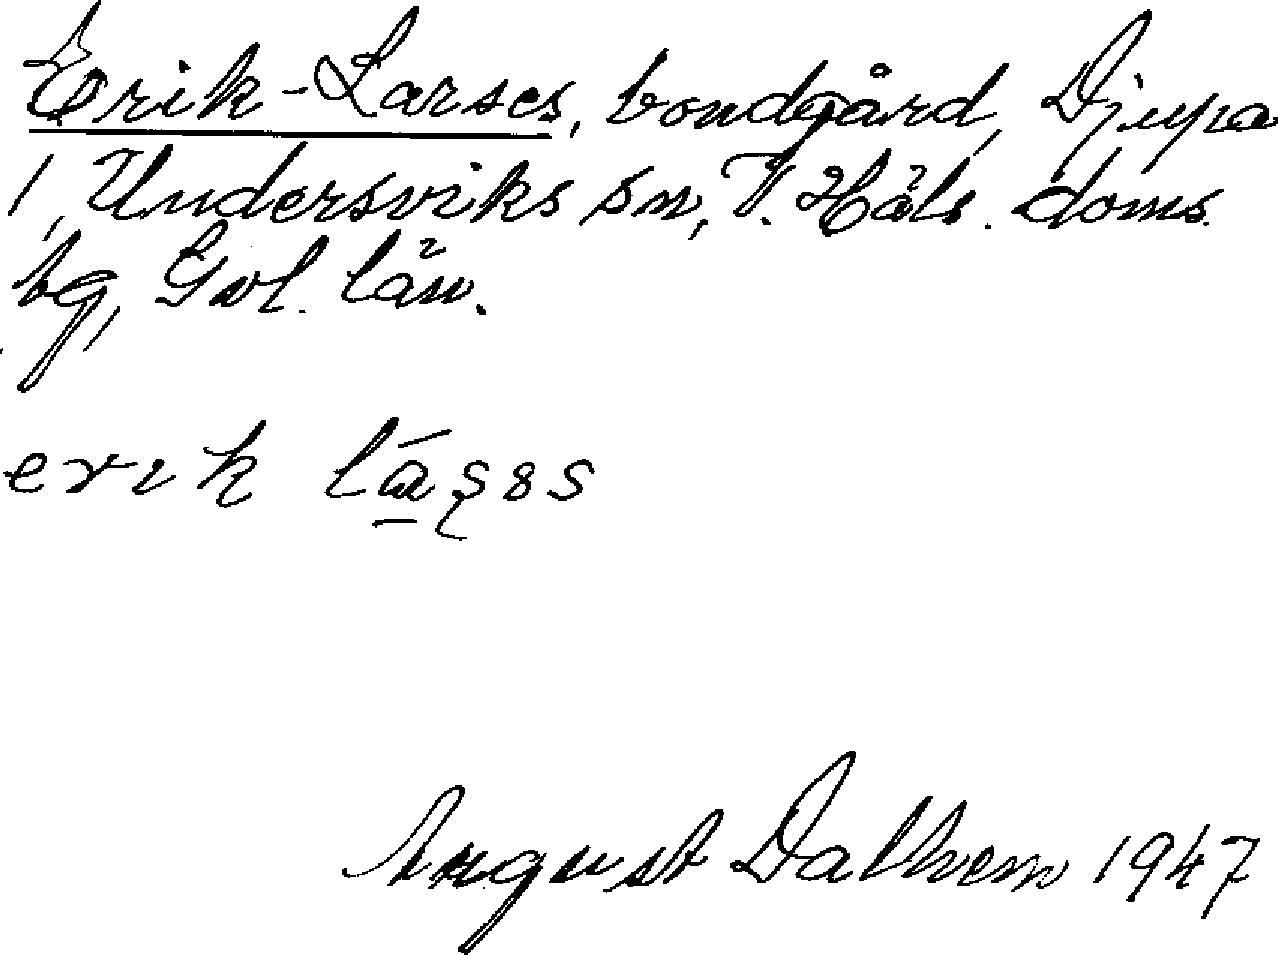 Erik-Larses, bondgård, Djupa
1, Undersviks sn, V. Häls. doms.
bg, Gvl. län.
August Dalhem 1947